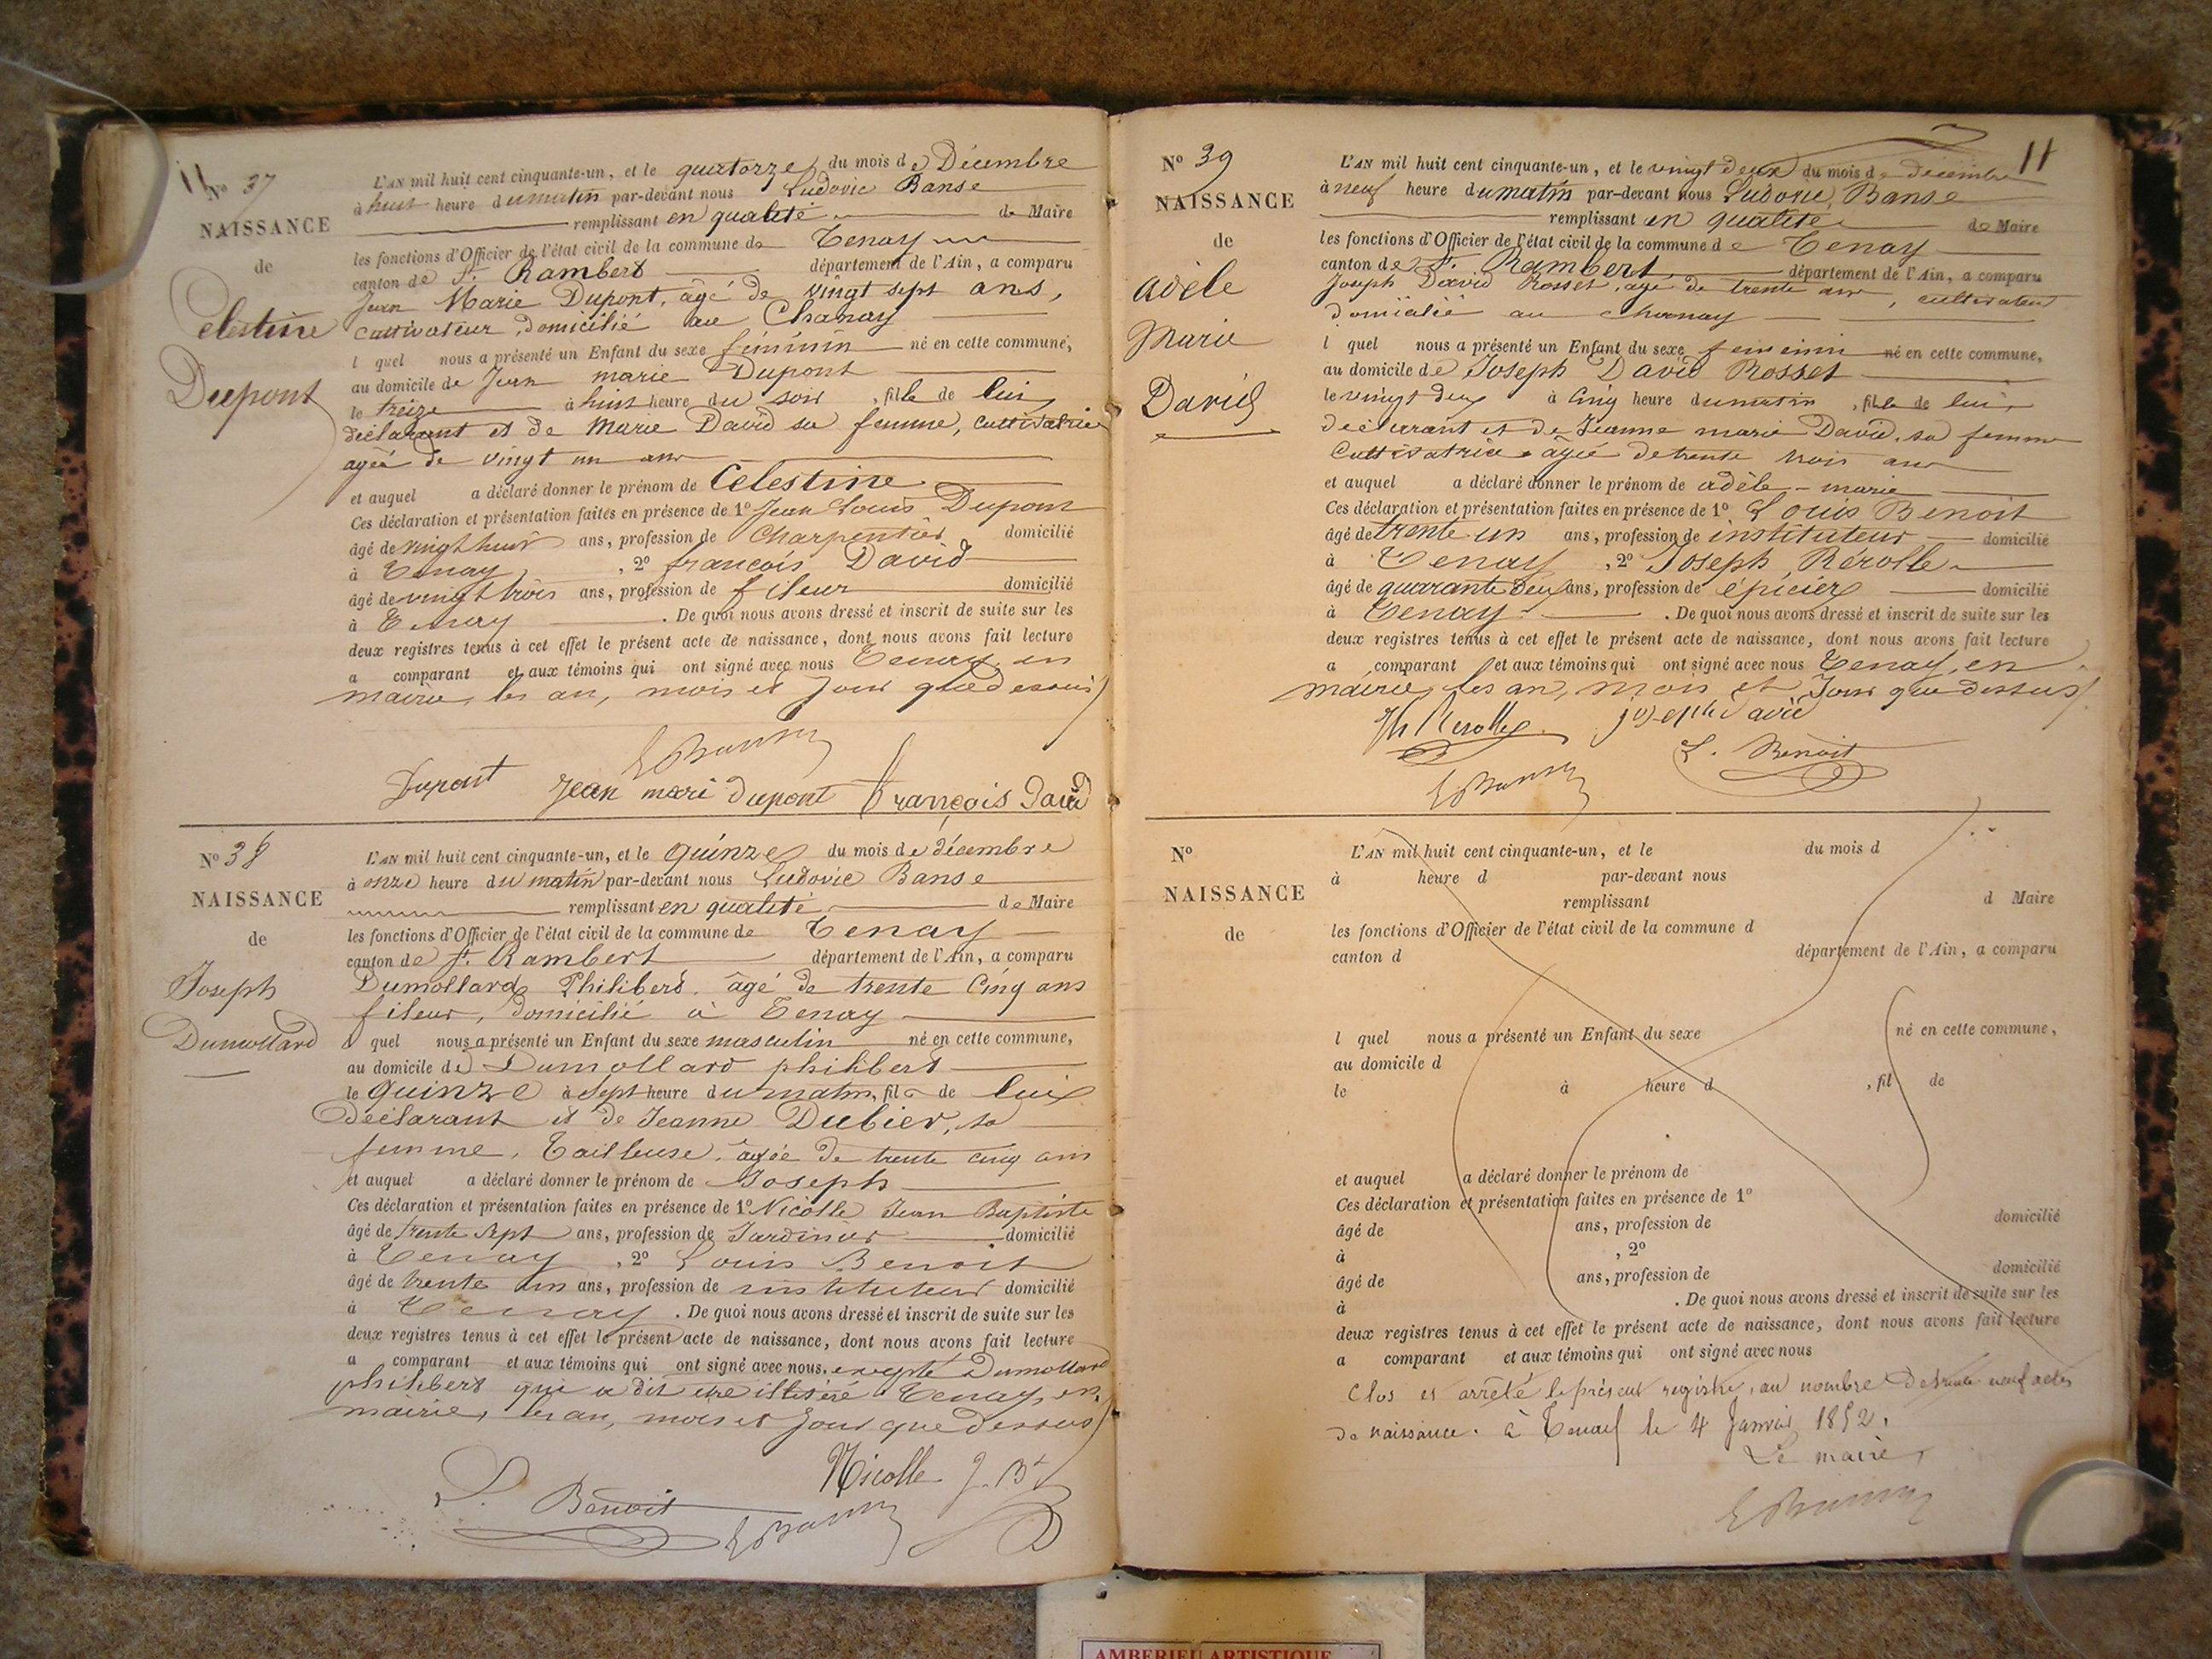 11
N° 37
NAISSANCE
de
Celestine
Dupont
L'AN mil huit cent cinquante-un, et le quatorze du mois de Décembre
à huit heure du matin par-devant nous Ludovic Banse
remplissant en qualité de Maire
les fonctions d'Officier de l'état civil de la commune de Tenay
canton de St. Rambert département de l'Ain, a comparu
Jean Marie Dupont, âgé de vingt sept ans,
cultivateur, domicilié au Chanay
l quel nous a présenté un Enfant du sexe féminin né en cette commune,
au domicile de Jean marie Dupont
le treize à huit heure du soir , fille de lui
déclarant et de Marie David sa femme, cultivatrice
agée de vingt un ans
et auquel a déclaré donner le prénom de Celestine
Ces déclaration et présentation faites en présence de 1° Jean Louis Dupont
âgé de vingt huit ans, profession de Charpentier domicilié
à Tenay , 2° françois David
âgé de vingt trois ans, profession de fileur domicilié
à Tenay . De quoi nous avons dressé et inscrit de suite sur les
deux registres tenus à cet effet le présent acte de naissance, dont nous avons fait lecture
a comparant et aux témoins qui ont signé avec nous Tenay, en
mairie, les an, mois et jour que dessus
LBanse
Dupont Jean mari dupont françois David
N° 38
NAISSANCE
de
Joseph
Dumollard
L'AN mil huit cent cinquante-un, et le quinze du mois de décembre
à onze heure du matin par-devant nous Ludovic Banse
remplissant en qualité de Maire
les fonctions d'Officier de l'état civil de la commune de Tenay
canton de St. Rambert département de l'Ain, a comparu
Dumollard Philibert, âgé de trente cinq ans
fileur, domicilié à Tenay
l quel nous a présenté un Enfant du sexe masculin né en cette commune,
au domicile de Dumollard philibert
le quinze à sept heure du matin, fil de lui
déclarant et de Jeanne Dubier, sa
femme, Tailleuse, agée de trente cinq ans
et auquel a déclaré donner le prénom de Joseph
Ces déclaration et présentation faites en présence de 1° Nicolle Jean Baptiste
âgé de trente sept ans, profession de Jardinier domicilié
à Tenay , 2° Louis Benoit
âgé de trente un ans, profession de instituteur domicilié
à Tenay . De quoi nous avons dressé et inscrit de suite sur les
deux registres tenus à cet effet le présent acte de naissance, dont nous avons fait lecture
a comparant et aux témoins qui ont signé avec nous, excepté Dumollard
philibert qui a dit etre illitéré Tenay, en
mairie, les an, mois et jour que dessus
Nicolle J. Bte
L. Benoit LBanse
11
N° 39
NAISSANCE
de
adèle
Marie
David
L'AN mil huit cent cinquante-un, et le vingt deux du mois de decembre
à neuf heure du matin par-devant nous Ludovic Banse
remplissant en qualité de Maire
les fonctions d'Officier de l'état civil de la commune de Tenay
canton de St. Rambert département de l'Ain, a comparu
Joseph David Rosset, agé de trente ans, cultivateur
domicilié au chanay
l quel nous a présenté un Enfant du sexe feminin né en cette commune,
au domicile de Joseph David Rosset
le vingt deux à cinq heure du matin , fille de lui
déclarant et de Jeanne marie David, sa femme
Cultivatrice agée de trente trois ans
et auquel a déclaré donner le prénom de adèle-marie
Ces déclaration et présentation faites en présence de 1° Louis Benoit
âgé de trente un ans, profession de instituteur domicilié
à Tenay , 2° Joseph Rérolle
âgé de quarante deux ans, profession de épicier domicilié
à Tenay . De quoi nous avons dressé et inscrit de suite sur les
deux registres tenus à cet effet le présent acte de naissance, dont nous avons fait lecture
a comparant et aux témoins qui ont signé avec nous Tenay, en
mairie, les an, mois et Jour que dessus
Jh Rerolle joseph David
L. Benoit
LBanse
N°
NAISSANCE
de
L'AN mil huit cent cinquante-un, et le du mois d
à heure d par-devant nous
remplissant d Maire
les fonctions d'Officier de l'état civil de la commune d
canton d département de l'Ain, a comparu
l quel nous a présenté un Enfant du sexe né en cette commune,
au domicile d
le à heure d , fil de
et auquel a déclaré donner le prénom de
Ces déclaration et présentation faites en présence de 1°
âgé de ans, profession de domicilié
à , 2°
âgé de ans, profession de domicilié
à . De quoi nous avons dressé et inscrit de suite sur les
deux registres tenus à cet effet le présent acte de naissance, dont nous avons fait lecture
a comparant et aux témoins qui ont signé avec nous
Clos et arrêté le présent registre, au nombre de trente neuf actes
de naissance. à Tenay le 4 Janvier 1852.
Le maire,
LBanse
AMBERIEU ARTISTIQUE